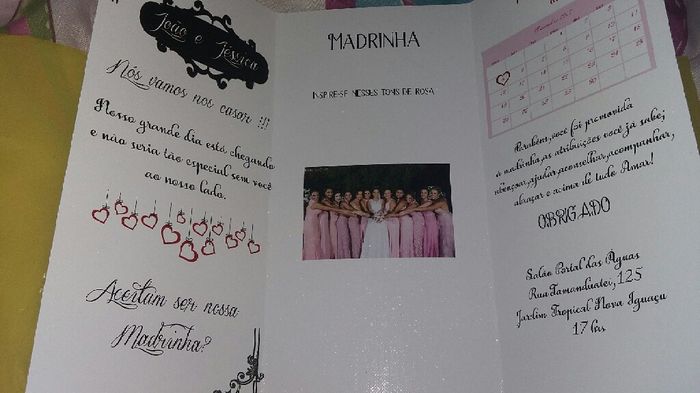 João e Jéssica
Nós vamos nos casar !!!
Nosso grande dia está chegando
e não seria tão especial sem você
ao nosso lado.
Aceitam ser nossa
Madrinha?
MADRINHA
INSPIRE-SE NESSES TONS DE ROSA
Parabéns, você foi promovida
a madrinha, as atribuições você já sabe;
abençoar, ajudar, aconselhar, acompanhar,
abraçar e acima de tudo Amar!
OBRIGADO
Salão Portal das Águas
Rua Tamanduatei, 125
Jardim Tropical Nova Iguaçu
17 hrs